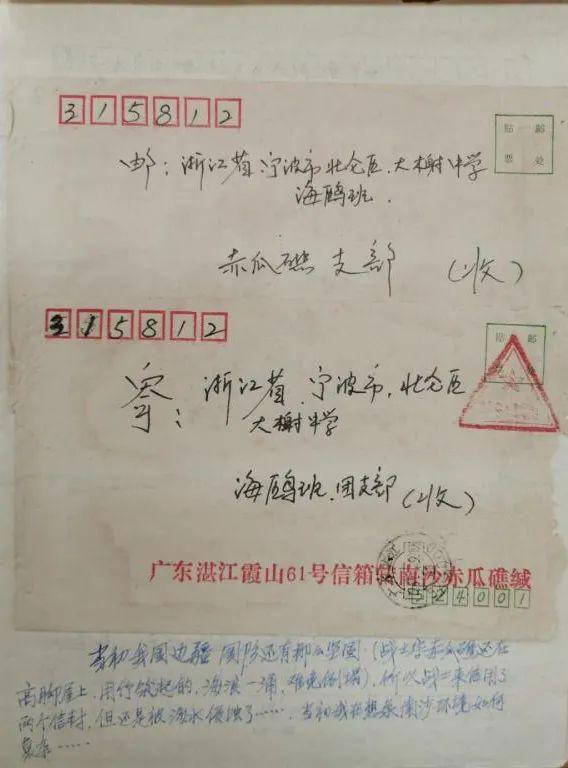 315812
贴 邮
票 处
邮:浙江省宁波市北仑区.大榭中学
海鸥班.
赤瓜礁支部(收)
315812
贴 邮
寄:浙江省.宁波市.北仑区
大榭中学
海鸥班.团支部(收)
广东湛江霞山61号信箱转南沙赤瓜礁缄
524001
当初我国边疆国防还有那么坚固.(战士学赤瓜礁还在
高脚屋上.用竹
起的,海浪一涌,难免倒塌).所以战士来信用了
两个信封.但还是被海水侵蚀了……当初我在想象南沙环境如何
……